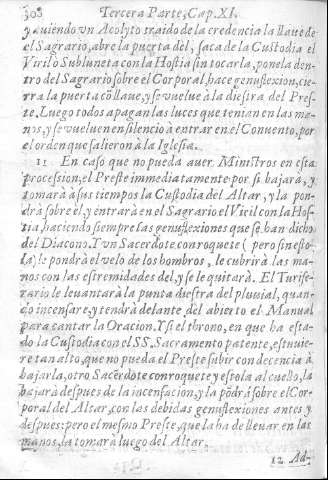 308 Tercera Parte, Cap. XI.
y auiendo vn Acolyto traido de la credencia la llaue de
el Sagrario, abre la puerta dèl, saca de la Custodia el
Viril ò Subluneta con la Hostia sin tocarla, ponela den-
tro del Sagrario sobre el Corporal, hace genuflexion, cie-
rra la puerta cõ llaue, y se vuelue à la diestra del Pres-
te. Luego todos apagan las luces que tenian en las ma-
nos, y se vueluen en silencio à entrar en el Conuento, por
el orden que salieron à la Iglesia.
11 En caso que no pueda auer Ministros en esta
procession, el Preste immediatamente por si baxarà, y
tomarà à sus tiempos la Custodia del Altar, y la pon-
drà sobre èl, y entrarà en el Sagrario el Viril con la Hos-
tia, haciendo siempre las genuflexiones que se han dicho
del Diacono. Y vn Sacerdote con roquete (pero sin esto-
la) le pondrà el velo de los hombros, le cubrirà las ma-
nos con las estremidades del, y se le quitarà. El Turife-
rario le leuantarà la punta diestra del pluuial, quan-
do incensare, y tendrà delante del abierto el Manual
para cantar la Oracion. Y si el throno, en que ha esta-
do la Custodia con el SS. Sacramento patente, estuuie-
re tan alto, que no pueda el Preste subir con decencia à
baxarla, otro Sacerdote con roquete y estola al cuello, la
baxarà despues de la incensacion, y la põdrà sobre el Cor-
poral del Altar, con las debidas genuflexiones antes y
despues: pero el mesmo Preste, que la ha de lleuar en las
manos, la tomarà luego del Altar.
12 Ad-